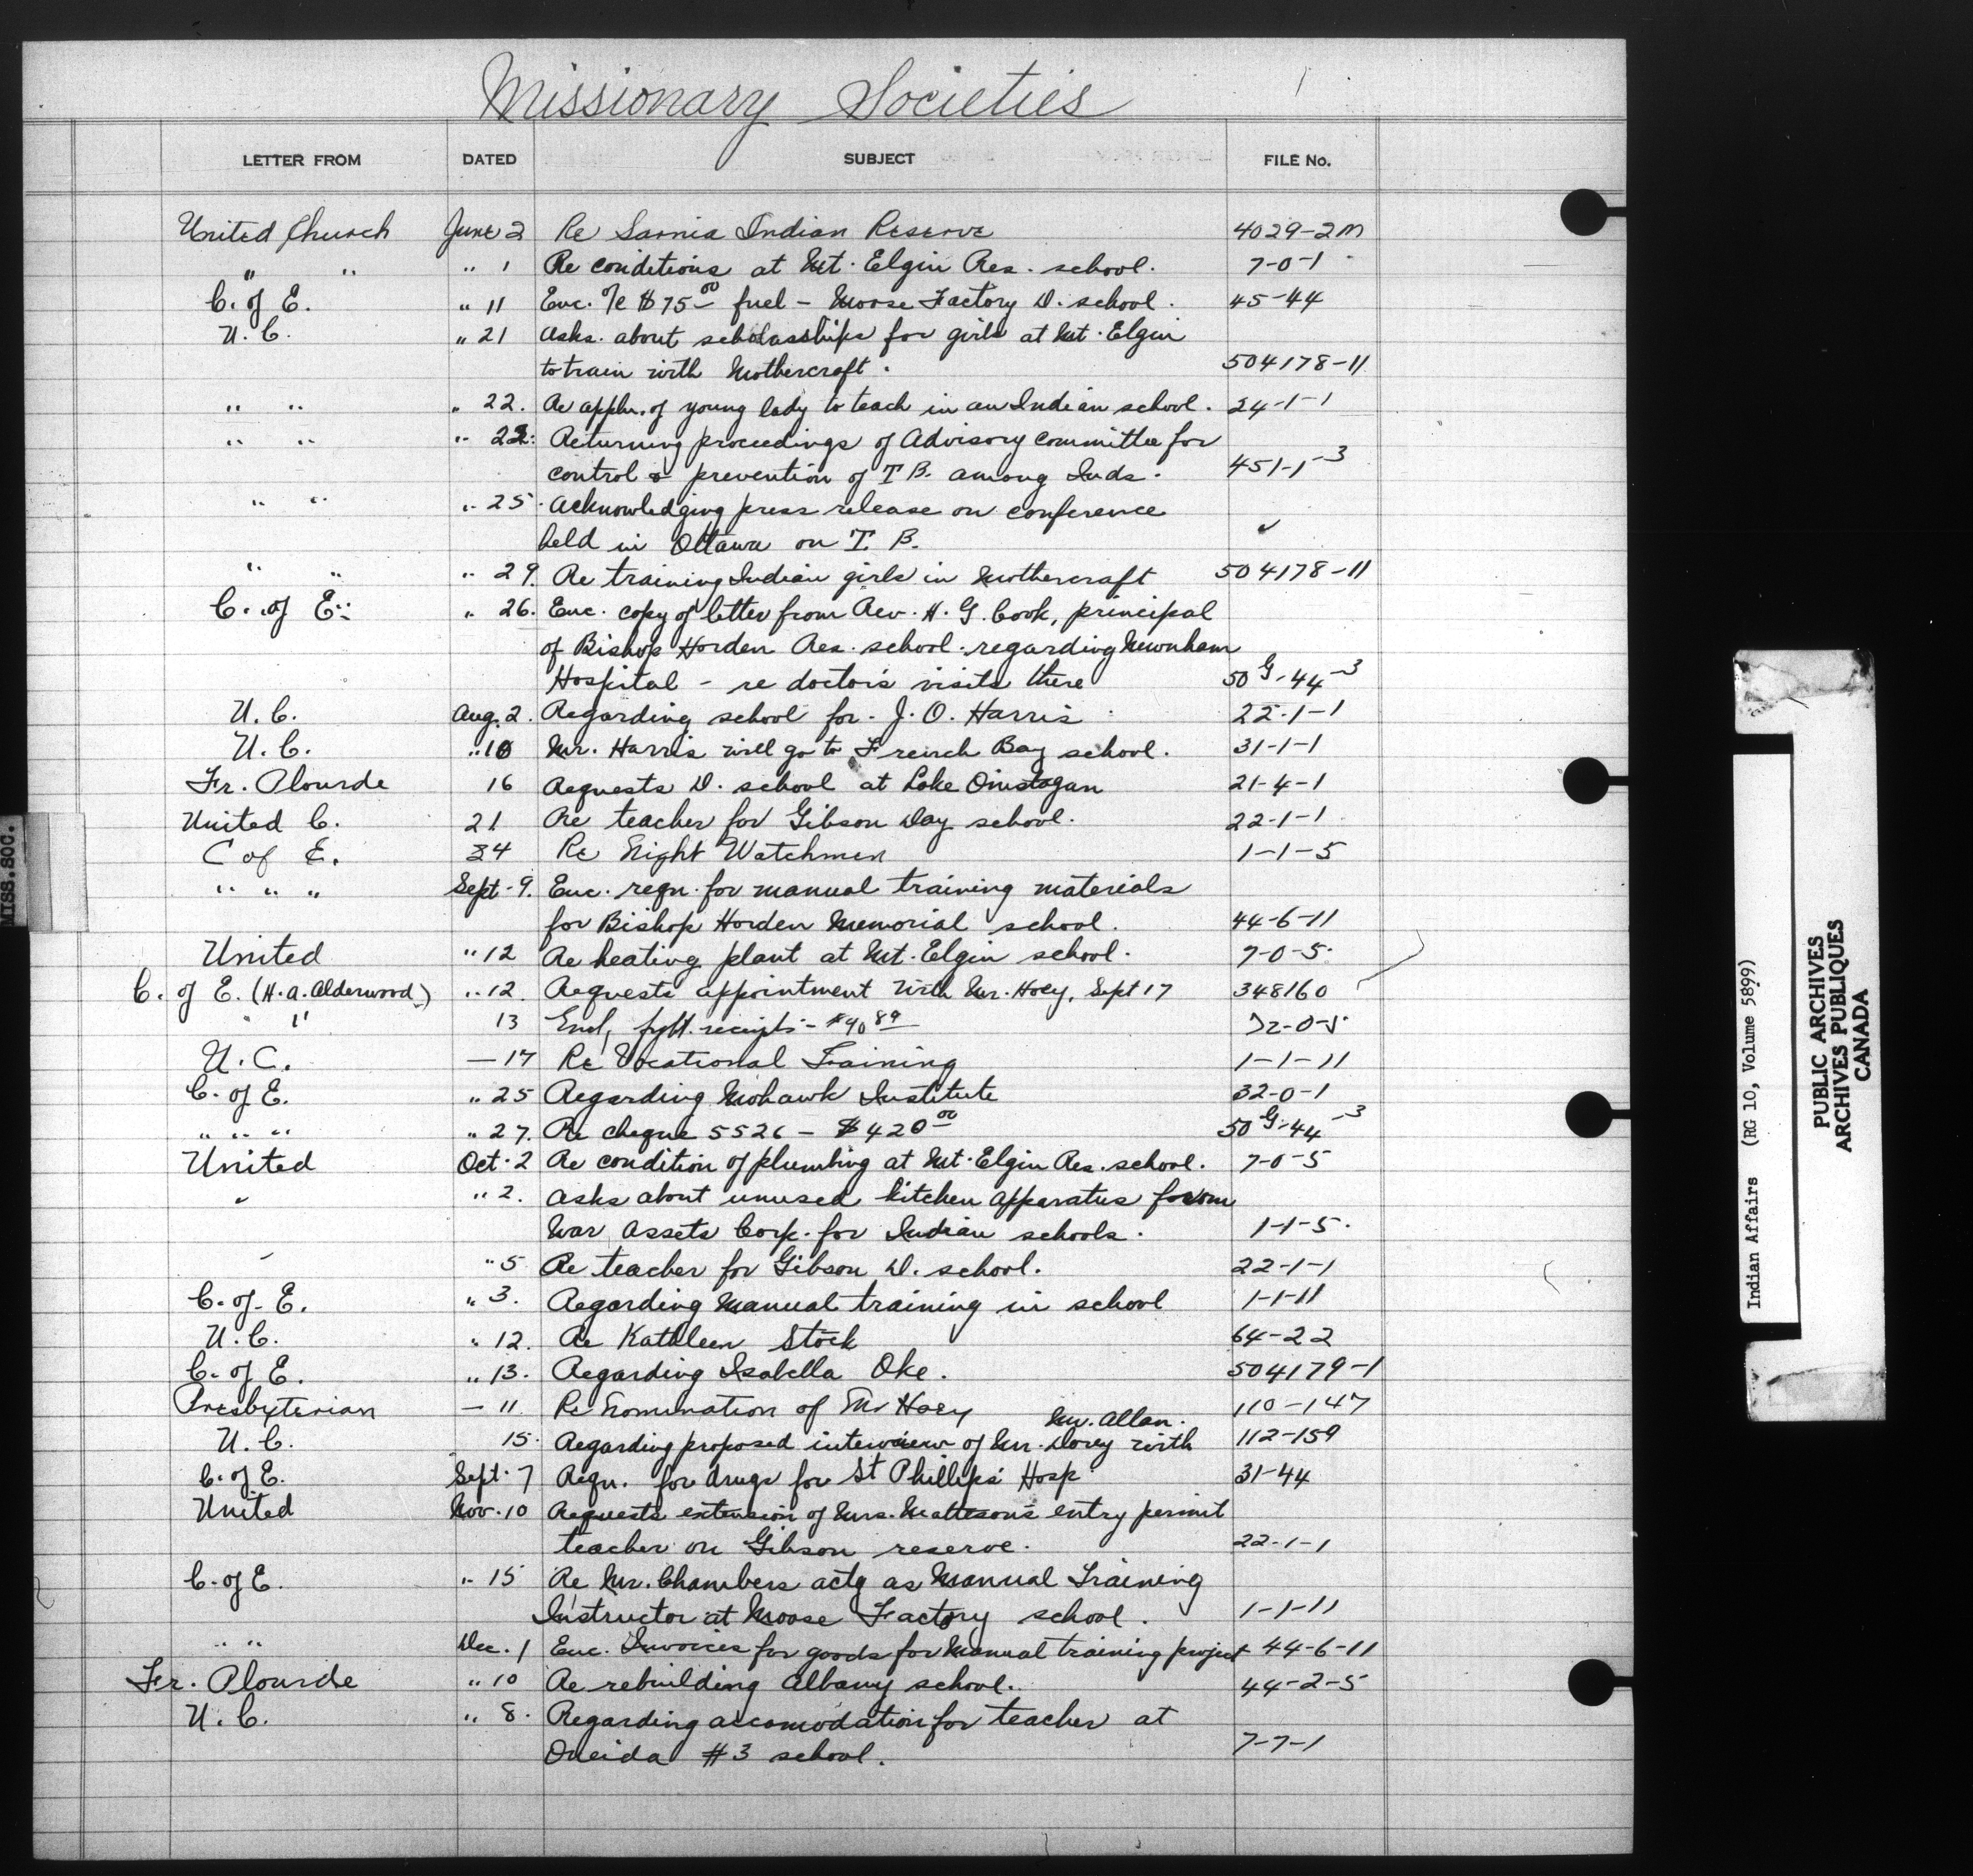 Missionary Societies
LETTER FROM DATED SUBJECT FILE No.
United Church June 2 Re Sarnia Indian Reserve 4029-2M
" " " 1 Re conditions at Mt. Elgin Res. school. 7-0-1
C. of E. " 11 Enc. a/c $75.00 fuel - Moose Factory D. school. 45-44
U.C. " 21 Asks about scholarships for girls at Mt. Elgin
to train with Mothercraft. 504178-11
" " " 22. Re appln. of young lady to teach in an Indian school. 24-1-1
" " " 22. Returning proceedings of Advisory Committee for
control & prevention of T B. among Inds. 451-1-3
" " " 25. Acknowledging press release on conference
held in Ottawa on T. B. ✓
" " " 29. Re training Indian girls in Mothercraft 504178-11
C. of E. " 26. Enc. copy of letter from Rev. H. G. Cook, principal
of Bishop Horden Res. school. regarding Newnham
Hospital - re doctor's visits there 50G-44-3
U.C. Aug. 2. Regarding school for J. O. Harris 22-1-1
U.C. " 16 Mr. Harris will go to French Bay school. 31-1-1
Fr. Plourde 16 Requests D. school at Lake 21-4-1
United C. 21 Re teacher for Gibson Day school. 22-1-1
C of E. 24 Re Night Watchmen 1-1-5
" " " Sept. 9. Enc. reqn. for manual training materials
for Bishop Horden Memorial school. 44-6-11
United " 12 Re heating plant at Mt. Elgin school. 7-0-5.
C. of E. (H.A. Alderwood) " 12. Requests appointment with Mr. Hoey, Sept 17 348160
" " 13 Encl, receipts - $40 89
U.C. - 17 Re Vocational Training 1-1-11
C. of E. " 25 Regarding Mohawk Institute 32-0-1
" " " " 27. Re cheque 5526 - $420.00 50G-44-3
United Oct. 2 Re condition of plumbing at Mt. Elgin Res. school. 7-0-5
" " 2. Asks about unused kitchen apparatus from
War Assets Corp. for Indian schools. 1-1-5.
" " 5 Re teacher for Gibson D. school. 22-1-1
C. of E. " 3. Regarding Manual training in school 1-1-11
U.C. " 12. Re Kathleen Stock 64-22
C. of E. " 13. Regarding Isabella Oke. 504179-1
Presbyterian - 11 Re Nomination of Mr Hoey 110-147
Mr. Allan.
U.C. 15. Regarding proposed interview of Mr. Dorey with 112-159
C. of E. Sept. 7 Reqn. for drugs for St Phillips Hosp 31-44
United Nov. 10 Requests extension of Mrs. Matteson's entry permit
teacher on Gibson reserve. 22-1-1
C. of E. " 15 Re Mr. Chambers actg as Manual Training
Instructor at Moose Factory school. 1-1-11
" " Dec. 1 Enc. Invoices for goods for Manual training project 44-6-11
Fr. Plourde " 10 Re rebuilding Albany school. 44-2-5
U.C. " 8. Regarding accomodation for teacher at
Oneida #3 school. 7-7-1
MISS. SOC.
Indian Affairs (RG 10, Volume 5899)
PUBLIC ARCHIVES
ARCHIVES PUBLIQUES
CANADA